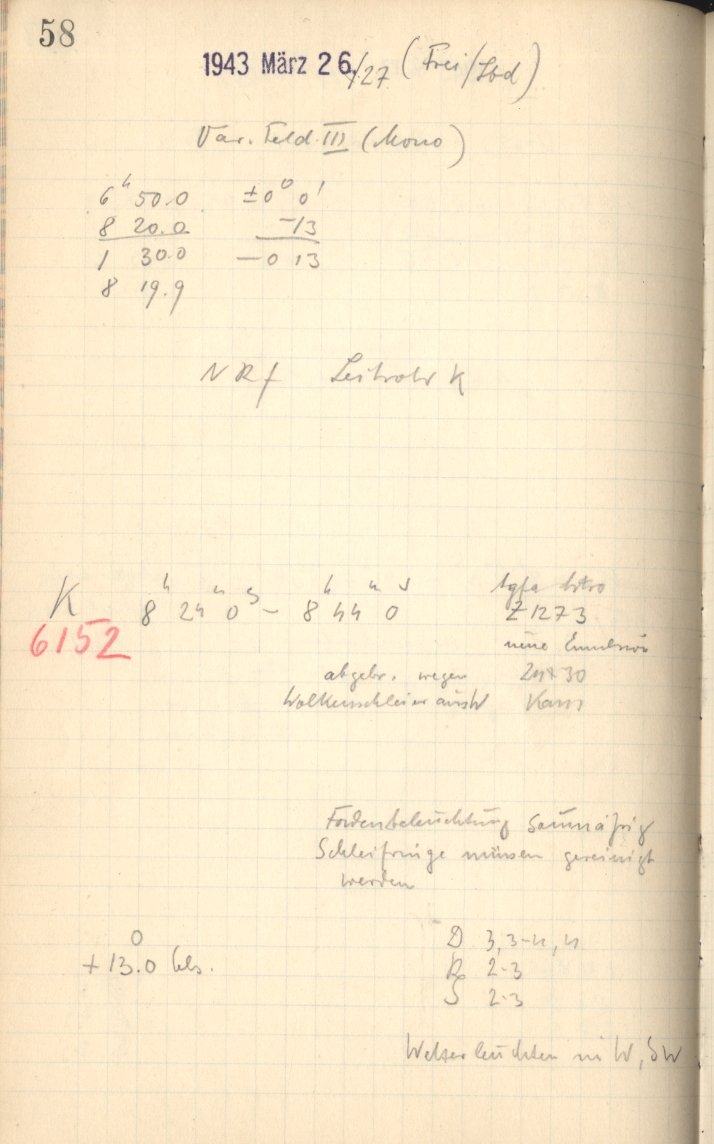 58
1943 März 26./27 (Frei/Lbd)
Var. Feld III (Mono)
6ʰ 50.0 ±0° 0'
8 20.0 -13
1 30.0 -0 13
8 19.9
NRf Leitrohr K
K 8ʰ 24ᵐ 0ˢ - 8ʰ 44ᵐ 0ˢ Agfa Astro
6152 Z1273
neue Emulsion
abgebr. wegen 24×30
Wolkenschleier aus W
Fadenbeleuchtung saumäßig
Schleifringe müssen gereinigt
werden
0
+13.0 Cels.
D 3, 3-4, 4
R 2-3
S 2-3
Wetterleuchten in W, SW